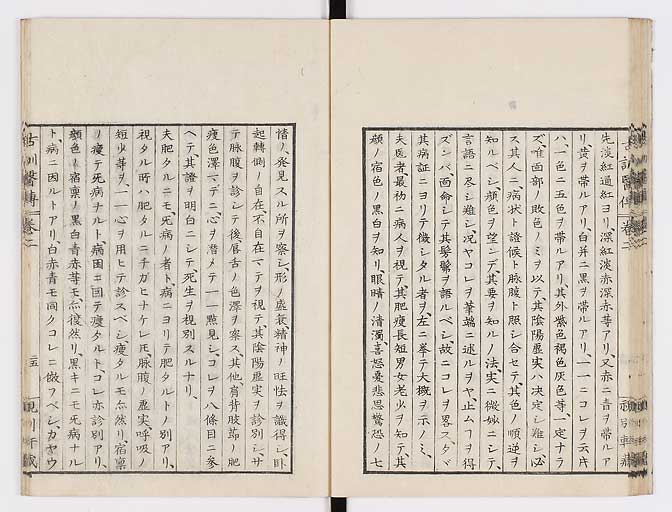 先淡紅過紅ヨリ、深紅淡赤深赤等アリ、又赤ニ青ヲ帶ルア
リ、黄ヲ帶ルアリ、白并ニ黒ヲ帶ルアリ、一一ニコレヲ云ヘ
ハ、一色ニ五色ヲ帶ルアリ、其外紫色褐色灰色等、一定ナラ
ズ、唯面部ノ敗色ノミヲ以テ、其陰陽虚実ハ決定シ難シ、必
ス其人ニ、病状ト證候ト脉腹ト照シ合セテ、其色ノ順逆ヲ
知ルベシ、顔色ヲ望ンデ、其要ヲ知ルノ法、実ニ微妙ニシテ、
言語ニ尽シ難シ、况ヤコレヲ筆端ニ述ルヲヤ、止ムヿヲ得
ズンバ、面命シテ其髣髴ヲ語ルベシ、故ニコレヲ畧ス、タヾ
其病証ニヨリテ、徴シタル者ヲ、左ニ挙テ大概ヲ示ノミ、
夫医者最初ニ病人ヲ視テ、其肥瘦長短男女老少ヲ知テ、其
顔ノ宿色ノ黒白ヲ知リ、眼睛ノ清濁、喜怒憂悲思驚恐ノ七
情ノ発見スル所ヲ察シ、形ノ盛衰、精神ノ旺怯ヲ識得シ、卧
起轉側ノ自在不自在マテヲ視テ、其陰陽虚実ヲ診別シ、サ
テ脉腹ヲ診シテ後、唇舌ノ色澤ヲ察ス、其他肩背肢節ノ肥
瘦色澤マデニ、心ヲ潜メテ一一點見シ、コレヲ八條目ニ參
ヘテ、其證ヲ明白ニシテ、死生ヲ視別スルナリ、
夫肥タルニモ、死病ノ者ト、病ニヨリテ肥タルトノ別アリ、
視タル所ハ肥タルニチガヒナケレ𪜈、脉腹ノ虚実呼吸ノ
短少等ヲ、一一心ヲ用ヒテ診スベシ、瘦タルモ亦然リ、宿稟
ノ瘦テ死病ナルト、病困ニ因テ瘦タルト、コレ亦診別アリ、
顔色ノ宿稟ノ黒白青赤等モ亦復然リ、黒キニモ死病ナル
ト、病ニ因ルトアリ、白赤青モ同クコレニ傚フベシ、カヤウ
古訓醫傳 卷二
五